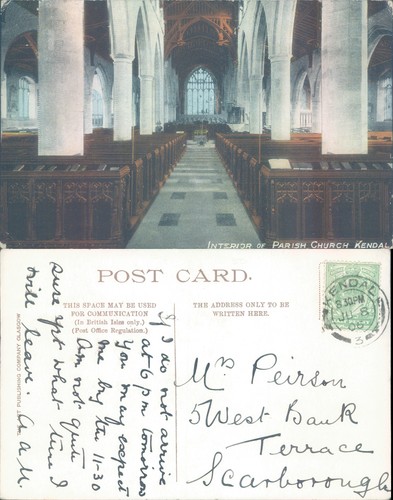 INTERIOR OF PARISH CHURCH KENDAL
POST CARD.
THIS SPACE MAY BE USED
FOR COMMUNICATION
(In British Isles only.)
(Post Office Regulation.)
THE ADDRESS ONLY TO BE
WRITTEN HERE.
KENDAL
8.30PM
JU 8
3
If I do not arrive
at 6 pm tomorrow
You may expect
me by the 11-30
Am not quite
sure yet what time I
will leave.
Mrs Peirson
5 West Bank
Terrace
Scarborough
PUBLISHING COMPANY GLASGOW